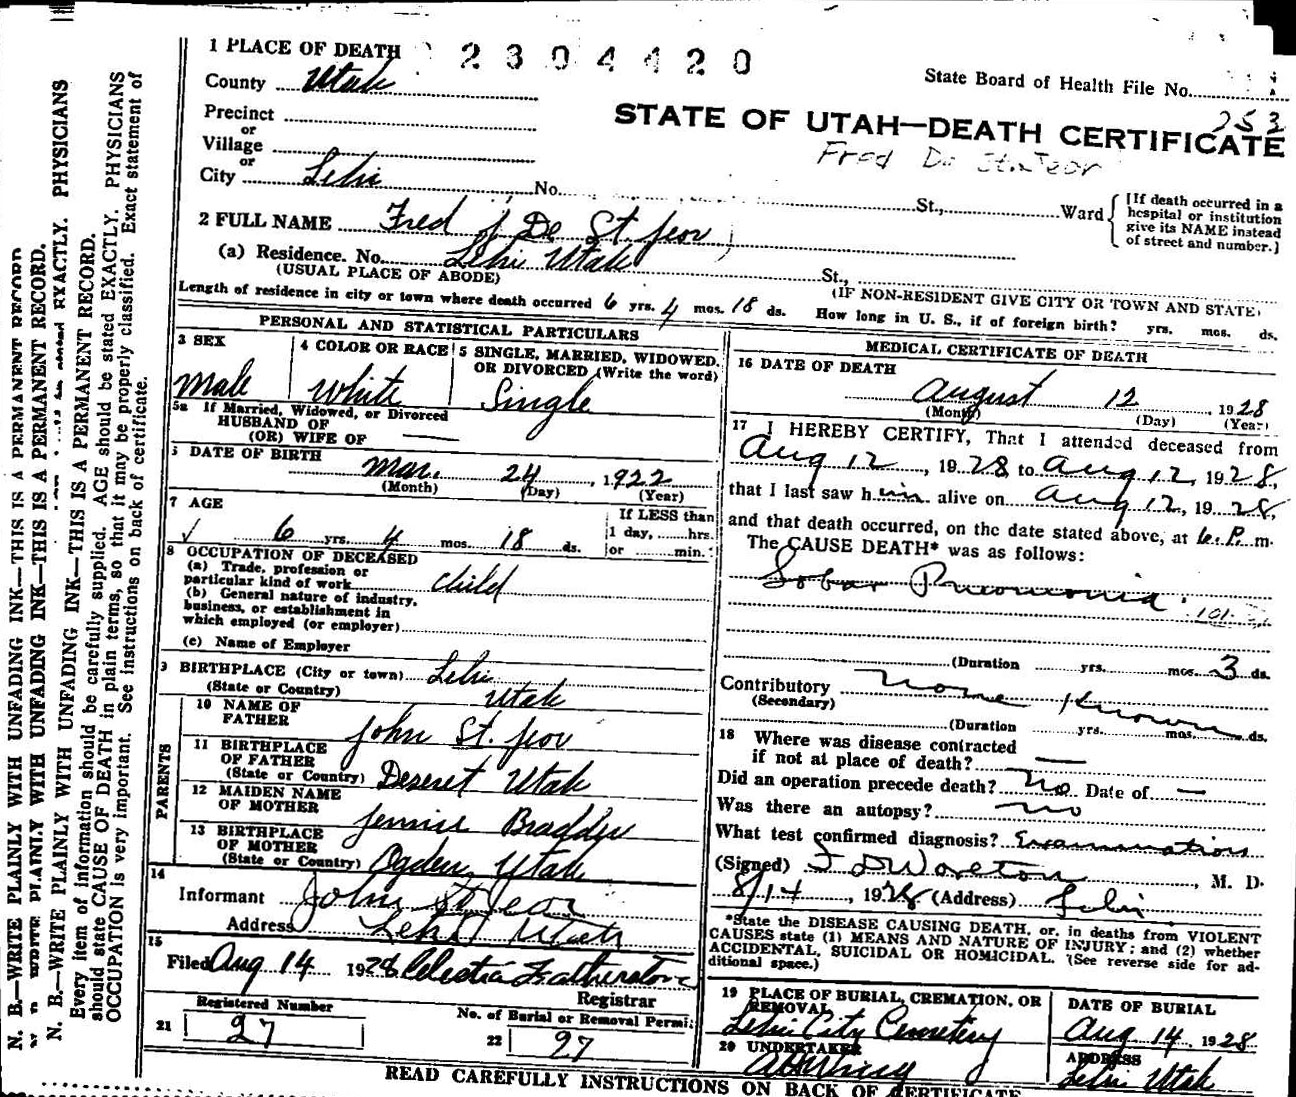 1 PLACE OF DEATH 2304420
County Utah
State Board of Health File No. 253
Precinct
or
Village
or
STATE OF UTAH—DEATH CERTIFICATE
Fred De St. Jeor
City Lehi No. St., Ward
[If death occurred in a hospital or institution give its NAME instead of street and number.]
2 FULL NAME Fred De St. Jeor
(a) Residence. No. Lehi Utah St.,
(USUAL PLACE OF ABODE)
(IF NON-RESIDENT GIVE CITY OR TOWN AND STATE)
Length of residence in city or town where death occurred 6 yrs. 4 mos. 18 ds. How long in U. S., if of foreign birth? yrs. mos. ds.
PERSONAL AND STATISTICAL PARTICULARS
3 SEX
Male
4 COLOR OR RACE
White
5 SINGLE, MARRIED, WIDOWED, OR DIVORCED (Write the word)
Single
5a If Married, Widowed, or Divorced
HUSBAND OF
(OR) WIFE OF —
DATE OF BIRTH
Mar. 24, 1922
(Month) (Day) (Year)
7 AGE
6 yrs. 4 mos. 18 ds.
If LESS than
1 day, hrs.
or min.
8 OCCUPATION OF DECEASED
(a) Trade, profession or
particular kind of work child
(b) General nature of industry,
business, or establishment in
which employed (or employer)
(c) Name of Employer
9 BIRTHPLACE (City or town) Lehi
(State or Country) Utah
PARENTS
10 NAME OF FATHER John St. Jeor
11 BIRTHPLACE OF FATHER
(State or Country) Deseret Utah
12 MAIDEN NAME OF MOTHER Jennie
13 BIRTHPLACE OF MOTHER
(State or Country) Ogden, Utah
14
Informant John St Jeor
Address Lehi Utah
15
Filed Aug 14 1928 Celestia Featherstone
Registrar
Registered Number
21 27
No. of Burial or Removal Permit
22 27
MEDICAL CERTIFICATE OF DEATH
16 DATE OF DEATH
August 12, 1928
(Month) (Day) (Year)
17 I HEREBY CERTIFY, That I attended deceased from
Aug 12, 1928, to Aug 12, 1928,
that I last saw him alive on Aug 12, 1928,
and that death occurred, on the date stated above, at 6. P. m.
The CAUSE DEATH* was as follows:
Lobar Pneumonia.
101
(Duration yrs. mos. 3 ds.
Contributory None Known
(Secondary)
(Duration yrs. mos. ds.
18 Where was disease contracted
if not at place of death? —
Did an operation precede death? No Date of —
Was there an autopsy? no
What test confirmed diagnosis? Examination
(Signed) , M. D.
8/14, 1928 (Address) Lehi
*State the DISEASE CAUSING DEATH, or, in deaths from VIOLENT
CAUSES state (1) MEANS AND NATURE OF INJURY; and (2) whether
ACCIDENTAL, SUICIDAL OR HOMICIDAL. (See reverse side for ad-
ditional space.)
19 PLACE OF BURIAL, CREMATION, OR REMOVAL
Lehi City Cemetery
DATE OF BURIAL
Aug 14, 1928
20 UNDERTAKER
ADDRESS
Lehi Utah
READ CAREFULLY INSTRUCTIONS ON BACK OF CERTIFICATE
N. B.—WRITE PLAINLY WITH UNFADING INK—THIS IS A PERMANENT RECORD
WRITE PLAINLY WITH UNFADING INK—THIS IS A PERMANENT RECORD.
N. B.—WRITE PLAINLY WITH UNFADING INK—THIS IS A PERMANENT RECORD.
Every item of information should be carefully supplied. AGE should be stated EXACTLY. PHYSICIANS
should state CAUSE OF DEATH in plain terms, so that it may be properly classified. Exact statement of
OCCUPATION is very important. See instructions on back of certificate.